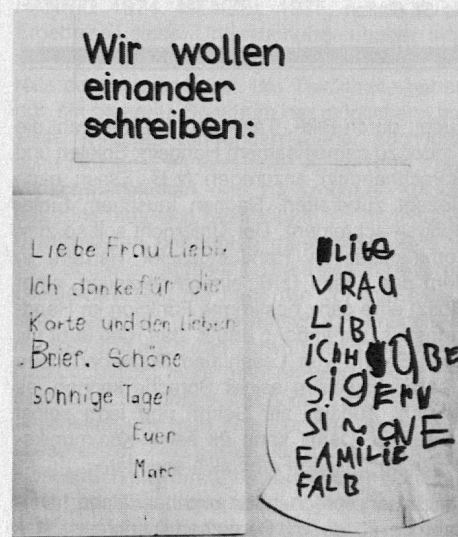 Wir wollen
einander
schreiben:
Liebe Frau
Ich danke für die
Karte und den lieben
Brief. Schöne
sonnige Tage!
Euer
Marc
LiBE
VRAU
LiBi
iCH
FAMiLiE
FALB